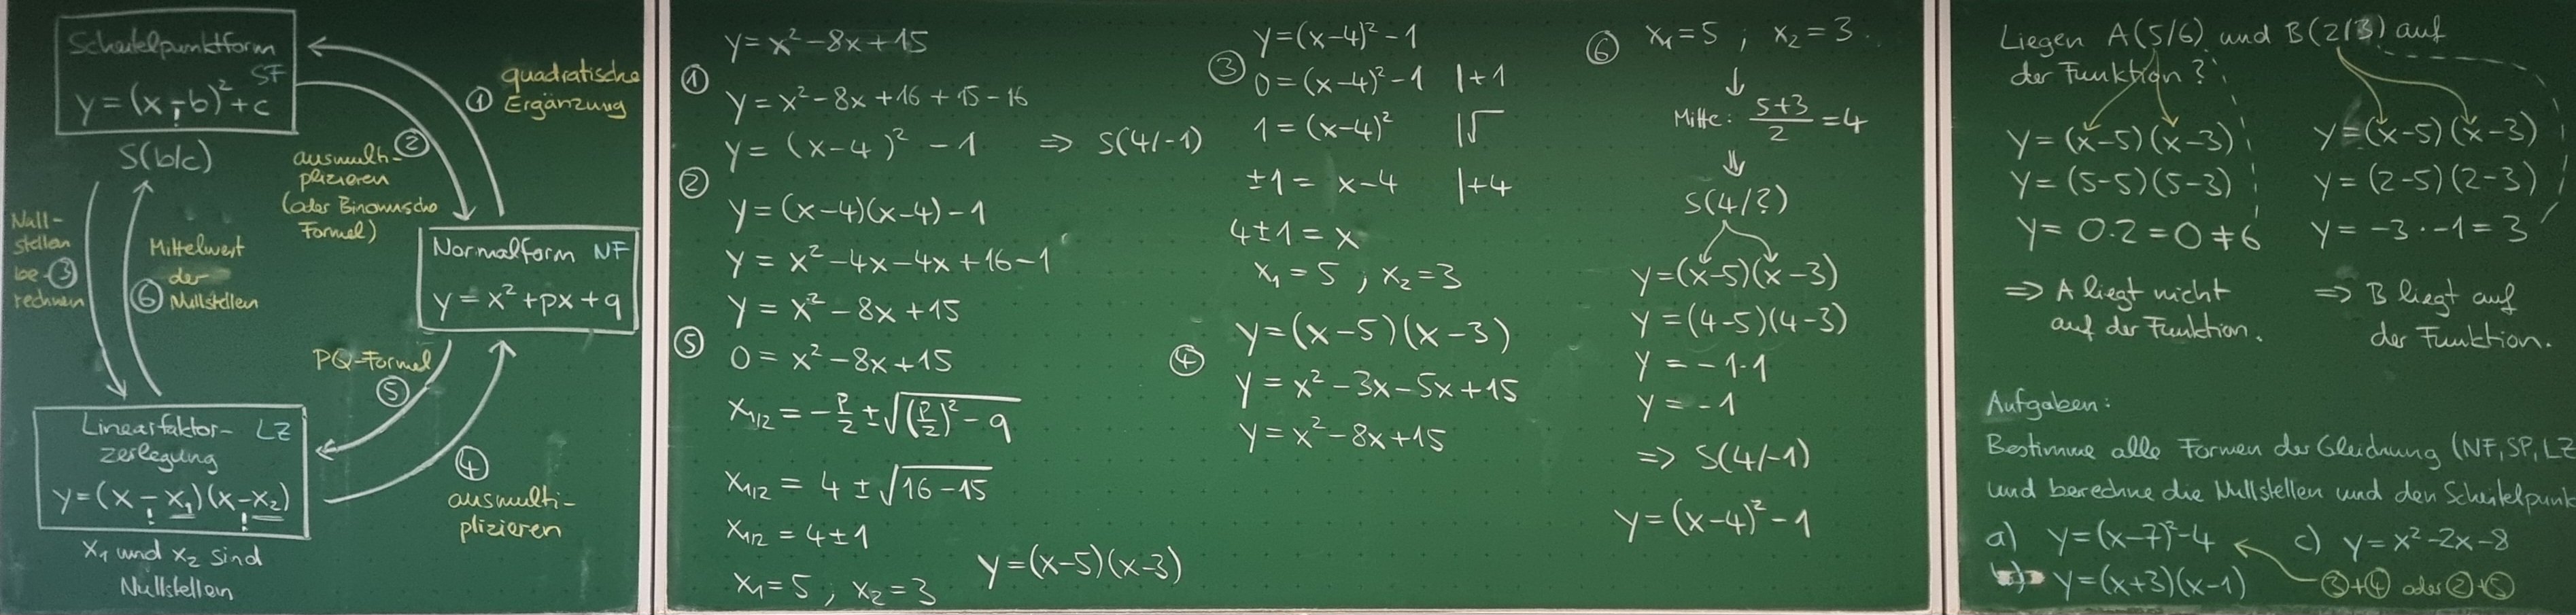 Scheitelpunktform
SF
y = (x - b)² + c
!
S(b/c)
① quadratische
Ergänzung
②
ausmulti-
plizieren
(oder Binomische
Formel)
Null-
stellen
be- ③
rechnen
Mittelwert
der
⑥ Nullstellen
Normalform NF
y = x² + px + q
PQ-Formel
⑤
Linearfaktor- LZ
zerlegung
y = (x - x₁)(x - x₂)
! !
x₁ und x₂ sind
Nullstellen
④
ausmulti-
plizieren
y = x² - 8x + 15
①
y = x² - 8x + 16 + 15 - 16
y = (x - 4)² - 1 ⇒ S(4/-1)
②
y = (x-4)(x-4) - 1
y = x² - 4x - 4x + 16 - 1
y = x² - 8x + 15
⑤
0 = x² - 8x + 15
x₁/₂ = -p/2 ± √((p/2)² - q)
x₁/₂ = 4 ± √(16 - 15)
x₁/₂ = 4 ± 1
x₁ = 5 , x₂ = 3 y = (x-5)(x-3)
y = (x-4)² - 1
③ 0 = (x-4)² - 1 |+1
1 = (x-4)² |√
±1 = x - 4 |+4
4 ± 1 = x
x₁ = 5 , x₂ = 3
y = (x-5)(x-3)
④
y = x² - 3x - 5x + 15
y = x² - 8x + 15
⑥ x₁ = 5 ; x₂ = 3
↓
Mitte: (5+3)/2 = 4
⇓
S(4/?)
y = (x-5)(x-3)
y = (4-5)(4-3)
y = -1·1
y = -1
⇒ S(4/-1)
y = (x-4)² - 1
Liegen A(5/6) und B(2/3) auf
der Funktion?
y = (x-5)(x-3)
y = (5-5)(5-3)
y = 0·2 = 0 ≠ 6
⇒ A liegt nicht
auf der Funktion.
y = (x-5)(x-3)
y = (2-5)(2-3)
y = -3·-1 = 3
⇒ B liegt auf
der Funktion.
Aufgaben:
Bestimme alle Formen der Gleichung (NF, SP, LZ
und berechne die Nullstellen und den Scheitelpunk
a) y = (x-7)² - 4 c) y = x² - 2x - 8
b) y = (x+3)(x-1) ③+④ oder ②+⑤